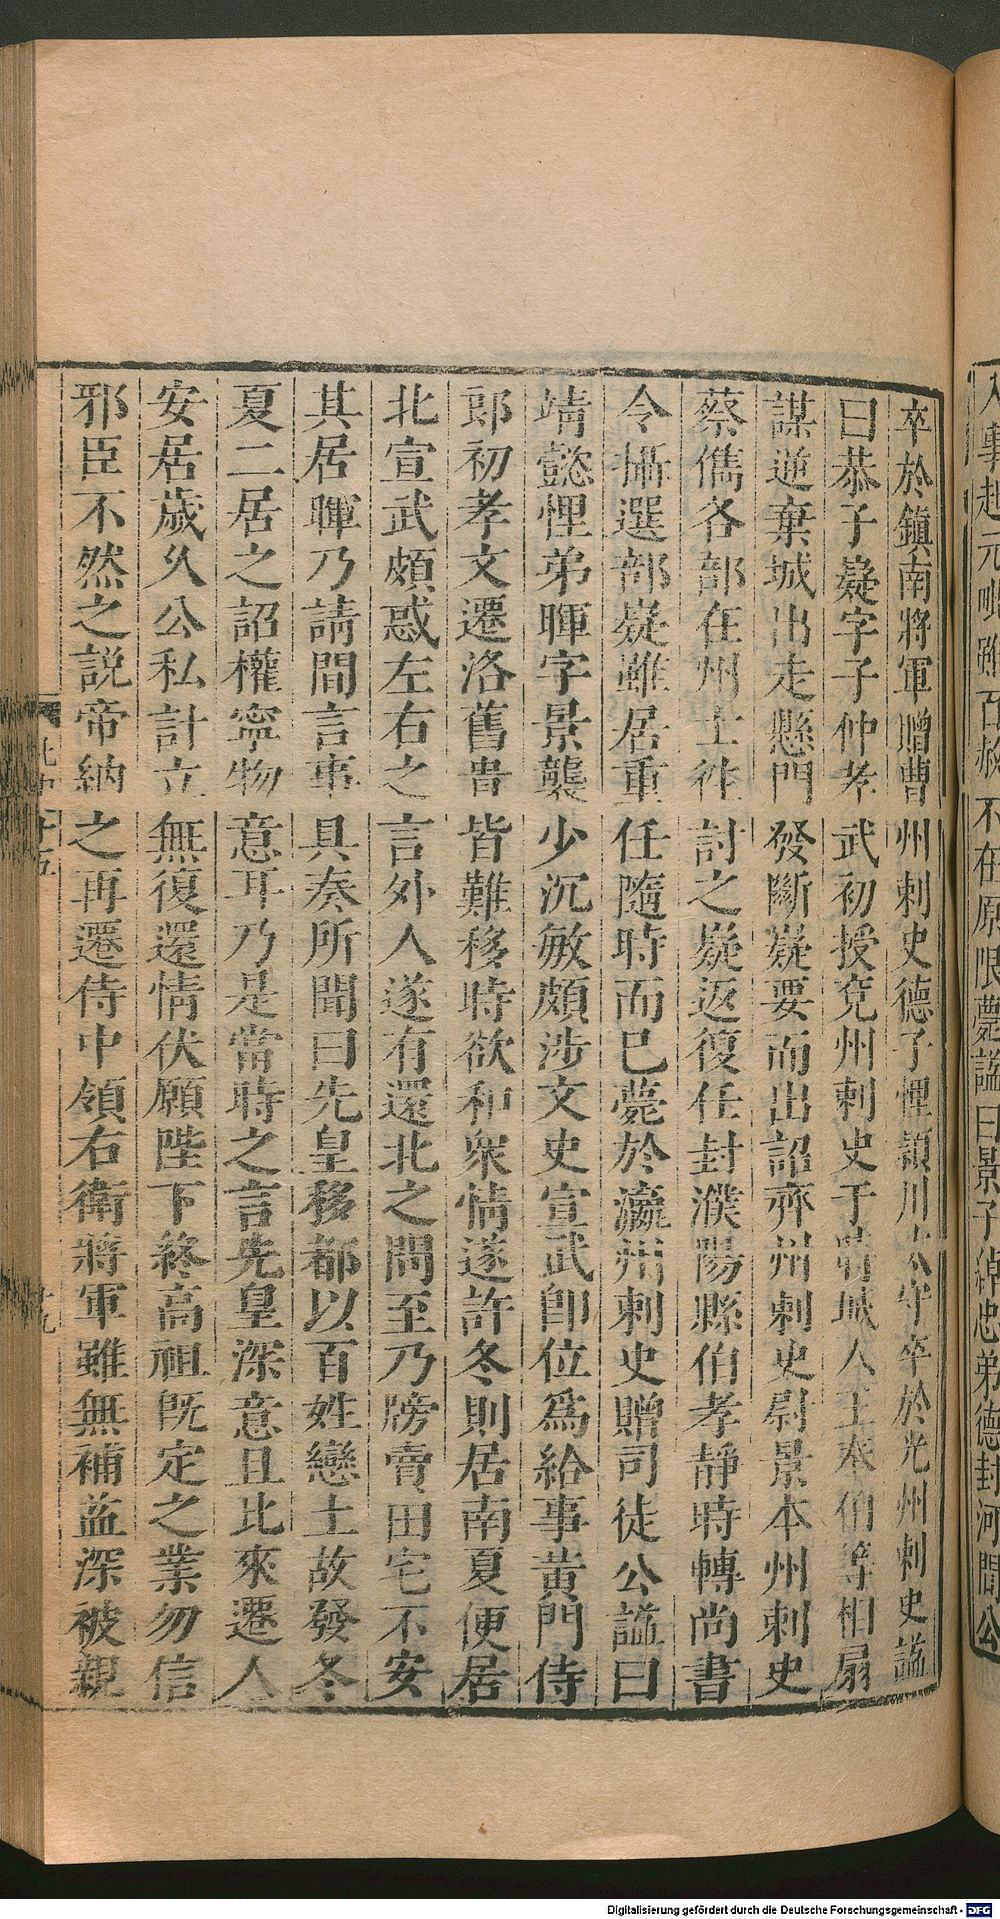 卒於鎮南將軍贈曹州刺史德子悝潁川太守卒於光州刺史謚
曰恭子嶷字子仲孝武初授兗州刺史于時城人王奉伯等相扇
謀逆棄城出走懸門發斷嶷要而出詔齊州刺史尉景本州刺史
蔡儁各部在州士往討之嶷返復任封濮陽縣伯孝靜時轉尚書
令攝選部嶷雖居重任隨時而已薨於瀛州刺史贈司徒公謚曰
靖懿悝弟暉字景襲少沉敏頗涉文史宣武卽位爲給事黃門侍
郎初孝文遷洛舊貴皆難移時欲和衆情遂許冬則居南夏便居
北宣武頗惑左右之言外人遂有還北之問至乃牓賣田宅不安
其居暉乃請間言事具奏所聞曰先皇移都以百姓戀土故發冬
夏二居之詔權寧物意耳乃是當時之言先皇深意且比來遷人
安居歲久公私計立無復還情伏願陛下終高祖旣定之業勿信
邪臣不然之說帝納之再遷侍中領右衛將軍雖無補益深被親
不在原限薨謚曰景子綽忠弟德封河間公
Digitalisierung gefördert durch die Deutsche Forschungsgemeinschaft - DFG